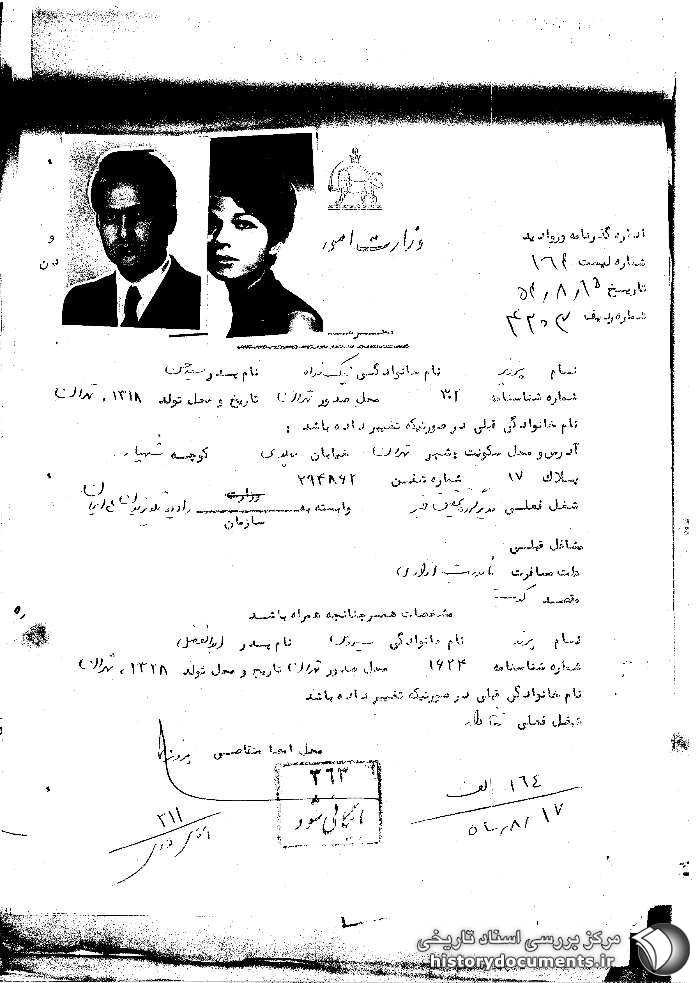 وزارت امور
اداره گذرنامه و روادید
شماره لیست ۱۶۴
تاریخ ۵۲/۸/۱۵
شماره ردیف ۴۲۰۳
نام پرویز نام خانوادگی نیکخواه نام پدر
شماره شناسنامه ۳۰۲ محل صدور تهران تاریخ و محل تولد ۱۳۱۸، تهران
نام خانوادگی قبلی در صورتیکه تغییر داده باشد :
آدرس و محل سکونت : شهر تهران خیابان پهلوی کوچه شهیار
پلاک ۱۷ شماره تلفن ۲۹۴۸۶۲
شغل فعلی وابسته به وزارت سازمان رادیو تلویزیون ملی ایران
مشاغل قبلی
علت مسافرت مأموریت اداری
مقصد کویت
مشخصات همسر چنانچه همراه باشد
نام نام خانوادگی نام پدر ابوالفضل
شماره شناسنامه ۱۶۲۴ محل صدور تهران تاریخ و محل تولد ۱۳۲۸، تهران
نام خانوادگی قبلی در صورتیکه تغییر داده باشد
شغل فعلی خانه دار
محل امضا متقاضی
۳۶۳
بایگانی شود
۱۶۴ الف
۵۲/۸/۱۷
۳۱۱
مرکز بررسی اسناد تاریخی
historydocuments.ir